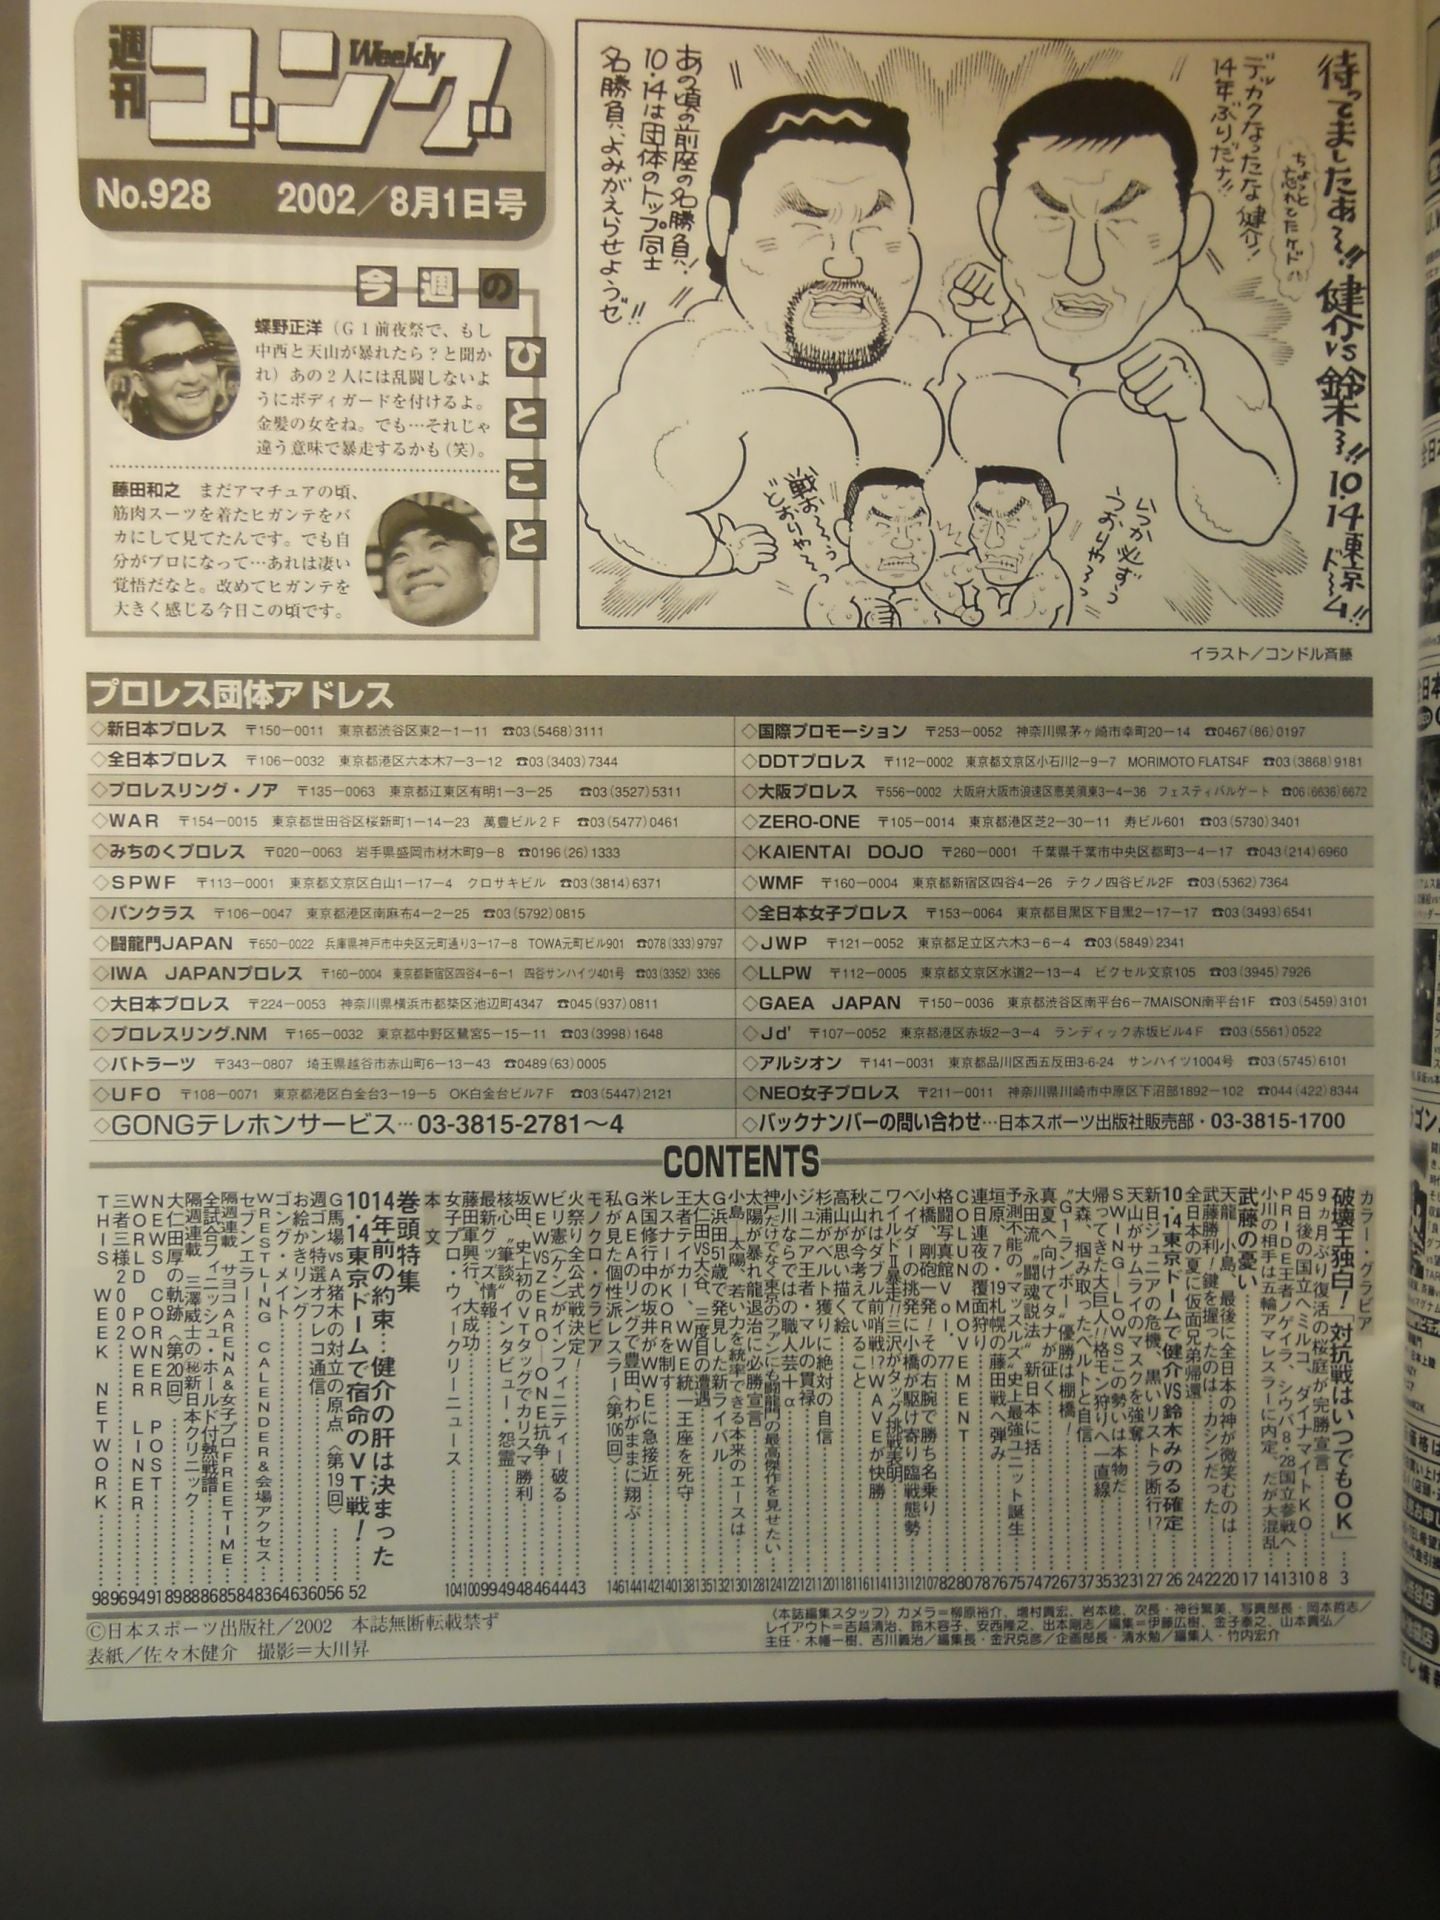 週刊
Weekly
ゴング
No.928　2002／8月1日号
今週のひとこと
蝶野正洋（G1前夜祭で、もし
中西と天山が暴れたら？と聞か
れ）あの2人には乱闘しないよ
うにボディガードを付けるよ。
金髪の女をね。でも…それじゃ
違う意味で暴走するかも（笑）。
藤田和之　まだアマチュアの頃、
筋肉スーツを着たヒガンテをバ
カにして見てたんです。でも自
分がプロになって…あれは凄い
覚悟だなと。改めてヒガンテを
大きく感じる今日この頃です。
待ってましたぁ〜!!健介vs鈴木〜!!10.14東京ド〜ム!!
ちょっと
忘れてたケド
デッカクなったな健介!
14年ぶりだナ!!
あの頃の前座の名勝負!
10.14は団体のトップ同士
名勝負、よみがえらせようゼ!!
いつか必ずぅ
うおりゃ〜っ
戦お〜うっ
どおりゃ〜っ
イラスト／コンドル斉藤
プロレス団体アドレス
◇新日本プロレス　〒150−0011　東京都渋谷区東2−1−11　☎03(5468)3111
◇全日本プロレス　〒106−0032　東京都港区六本木7−3−12　☎03(3403)7344
◇プロレスリング・ノア　〒135−0063　東京都江東区有明1−3−25　☎03(3527)5311
◇WAR　〒154−0015　東京都世田谷区桜新町1−14−23　萬豊ビル2F　☎03(5477)0461
◇みちのくプロレス　〒020−0063　岩手県盛岡市材木町9−8　☎0196(26)1333
◇SPWF　〒113−0001　東京都文京区白山1−17−4　クロサキビル　☎03(3814)6371
◇パンクラス　〒106−0047　東京都港区南麻布4−2−25　☎03(5792)0815
◇闘龍門JAPAN　〒650−0022　兵庫県神戸市中央区元町通り3−17−8　TOWA元町ビル901　☎078(333)9797
◇IWA　JAPANプロレス　〒160−0004　東京都新宿区四谷4−6−1　四谷サンハイツ401号　☎03(3352)3366
◇大日本プロレス　〒224−0053　神奈川県横浜市都築区池辺町4347　☎045(937)0811
◇プロレスリング.NM　〒165−0032　東京都中野区鷺宮5−15−11　☎03(3998)1648
◇バトラーツ　〒343−0807　埼玉県越谷市赤山町6−13−43　☎0489(63)0005
◇UFO　〒108−0071　東京都港区白金台3−19−5　OK白金台ビル7F　☎03(5447)2121
◇GONGテレホンサービス…03-3815-2781〜4
◇国際プロモーション　〒253−0052　神奈川県茅ヶ崎市幸町20−14　☎0467(86)0197
◇DDTプロレス　〒112−0002　東京都文京区小石川2−9−7　MORIMOTO FLATS4F　☎03(3868)9181
◇大阪プロレス　〒556−0002　大阪府大阪市浪速区恵美須東3−4−36　フェスティバルゲート　☎06(6636)6672
◇ZERO-ONE　〒105−0014　東京都港区芝2−30−11　寿ビル601　☎03(5730)3401
◇KAIENTAI　DOJO　〒260−0001　千葉県千葉市中央区都町3−4−17　☎043(214)6960
◇WMF　〒160−0004　東京都新宿区四谷4−26　テクノ四谷ビル2F　☎03(5362)7364
◇全日本女子プロレス　〒153−0064　東京都目黒区下目黒2−17−17　☎03(3493)6541
◇JWP　〒121−0052　東京都足立区六木3−6−4　☎03(5849)2341
◇LLPW　〒112−0005　東京都文京区水道2−13−4　ビクセル文京105　☎03(3945)7926
◇GAEA　JAPAN　〒150−0036　東京都渋谷区南平台6−7MAISON南平台1F　☎03(5459)3101
◇Jd'　〒107−0052　東京都港区赤坂2−3−4　ランディック赤坂ビル4F　☎03(5561)0522
◇アルシオン　〒141−0031　東京都品川区西五反田3-6-24　サンハイツ1004号　☎03(5745)6101
◇NEO女子プロレス　〒211−0011　神奈川県川崎市中原区下沼部1892−102　☎044(422)8344
◇バックナンバーの問い合わせ…日本スポーツ出版社販売部・03-3815-1700
CONTENTS
カラー・グラビア
破壊王独白！「対抗戦はいつでもOK」…3
9ヵ月ぶり復活の桜庭が完勝宣言…8
45日後の国立へミルコ、ダイナマイトKO…10
PRIDE王者ノゲイラ、シウバ8・28国立参戦へ…13
小川の相手は五輪アマレスラーに内定、だが大混乱…14
武藤の憂い…17
天龍—小島、最後に全日本の神が微笑むのは…20
武藤勝利！鍵を握ったのは、カシンだった…22
全日本の夏に仮面兄弟帰還…24
10・14東京ドームで健介VS鈴木みのる確定…26
新日ジュニアの危機、黒いリストラ断行!?…27
天山がサムライのマスクを強奪…31
SWING—LOWSこの勢いは本物だ…32
帰ってきた大巨人!!格モン狩りへ一直線…35
大森、掴み取ったベルトと自信…37
“G1ランボー”優勝は棚橋！…67
真夏へ向けてタナが征く…72
永田流“闘魂説法”新日本に括…74
予測不能の“マッスルズ”史上最強ユニット誕生…75
垣原、7・19札幌の藤田戦へ弾み…76
連日連夜の覆面狩り…78
COLUN　MOVEMENT…80
格闘写真館Vol.77…82
小橋、剛砲一発！その右腕で勝ち名乗り…107
ベイダーの挑発に小橋が駆け寄り臨戦態勢…112
ワイルドII暴走!!三沢がタッグ挑戦表明…113
これはダブル前哨戦？WAVEが快勝…114
秋山が今考えていること…116
高山が思い描く絵…118
杉浦がベルト獲りに絶対の自信…120
ジュニア王者・マルの貫禄…121
小川ならではの職人芸+α…122
神戸だけでなく東京のファンにも闘龍門の最高傑作を見せたい…124
太陽が暴れ龍退治に必勝宣言…128
小島—太陽、若い力を統率できる本来のエースは…130
大仁田vs大谷、三度目の遭遇…132
G浜田51歳で発見した新ライバル…135
王者テイカー、WWE統一王座を死守…138
レスナーがKORを制す…140
米国修行中の坂井がWWEに急接近…142
GAEAのリングで豊田、わがままに翔ぶ…144
私が見た個性派レスラー〈第106回〉…146
モノクロ・グラビア
火祭り全公式戦決定！…43
ビリ憲（ケン）がインフィニティー破る…44
WEWVSZERO—ONE抗争…46
坂田、史上初のVTタッグでカリスマ勝利…48
核心“筆談”インタビュー・怨霊…49
最新グッズ情報…99
藤田軍興行、大成功…100
女子プロ・ウィークリーニュース…104
本　文
巻頭特集
14年前の約束…健介の肝は決まった
10・14東京ドームで宿命のVT戦！…52
G馬場vsA猪木の対立の原点〈第19回〉…56
週ゴン特選オフレコ通信…60
お絵かきリング…63
ゴング・メイト…64
WRESTLING　CALENDER&会場アクセス…83
セブンエラー…84
隔週連載　サヨコARENA&女子プロFREETIME…85
全試合フィニッシュ・ホールド付熱戦譜…86
隔週連載　三澤威士の㊙新日本クリニック…88
大仁田厚の軌跡〈第20回〉…89
NEWS　CORNER　POST…91
WORLD　POWER　LINER…94
三者三様2002…96
THIS　WEEK　NETWORK…98
©日本スポーツ出版社／2002　本誌無断転載禁ず
表紙／佐々木健介　撮影＝大川昇
〈本誌編集スタッフ〉カメラ＝柳原裕介、増村貴宏、岩本稔、次長・神谷繁美、写真部長・岡本哲志／
レイアウト＝吉越清治、鈴木容子、安西隆之、出本剛志／編集＝伊藤広樹、金子泰之、山本貴弘／
主任・木幡一樹、吉川義治／編集長・金沢克彦／企画部長・清水勉／編集人・竹内宏介